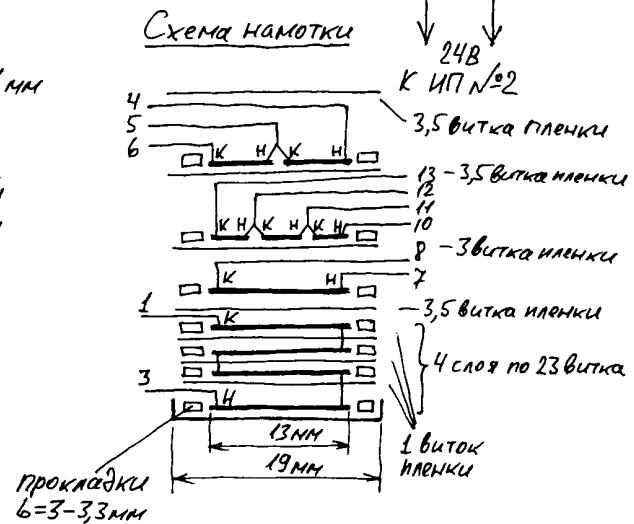 Схема намотки
24В
К ИП №2
мм
4
5
6
К Н К Н
3,5 витка пленки
13 - 3,5 витка пленки
12
11
10
К Н К Н К Н
8 - 3 витка пленки
7
К Н
- 3,5 витка пленки
1
К
4 слоя по 23 витка
3
Н
1 виток
пленки
13мм
19мм
прокладки
b=3-3,3мм